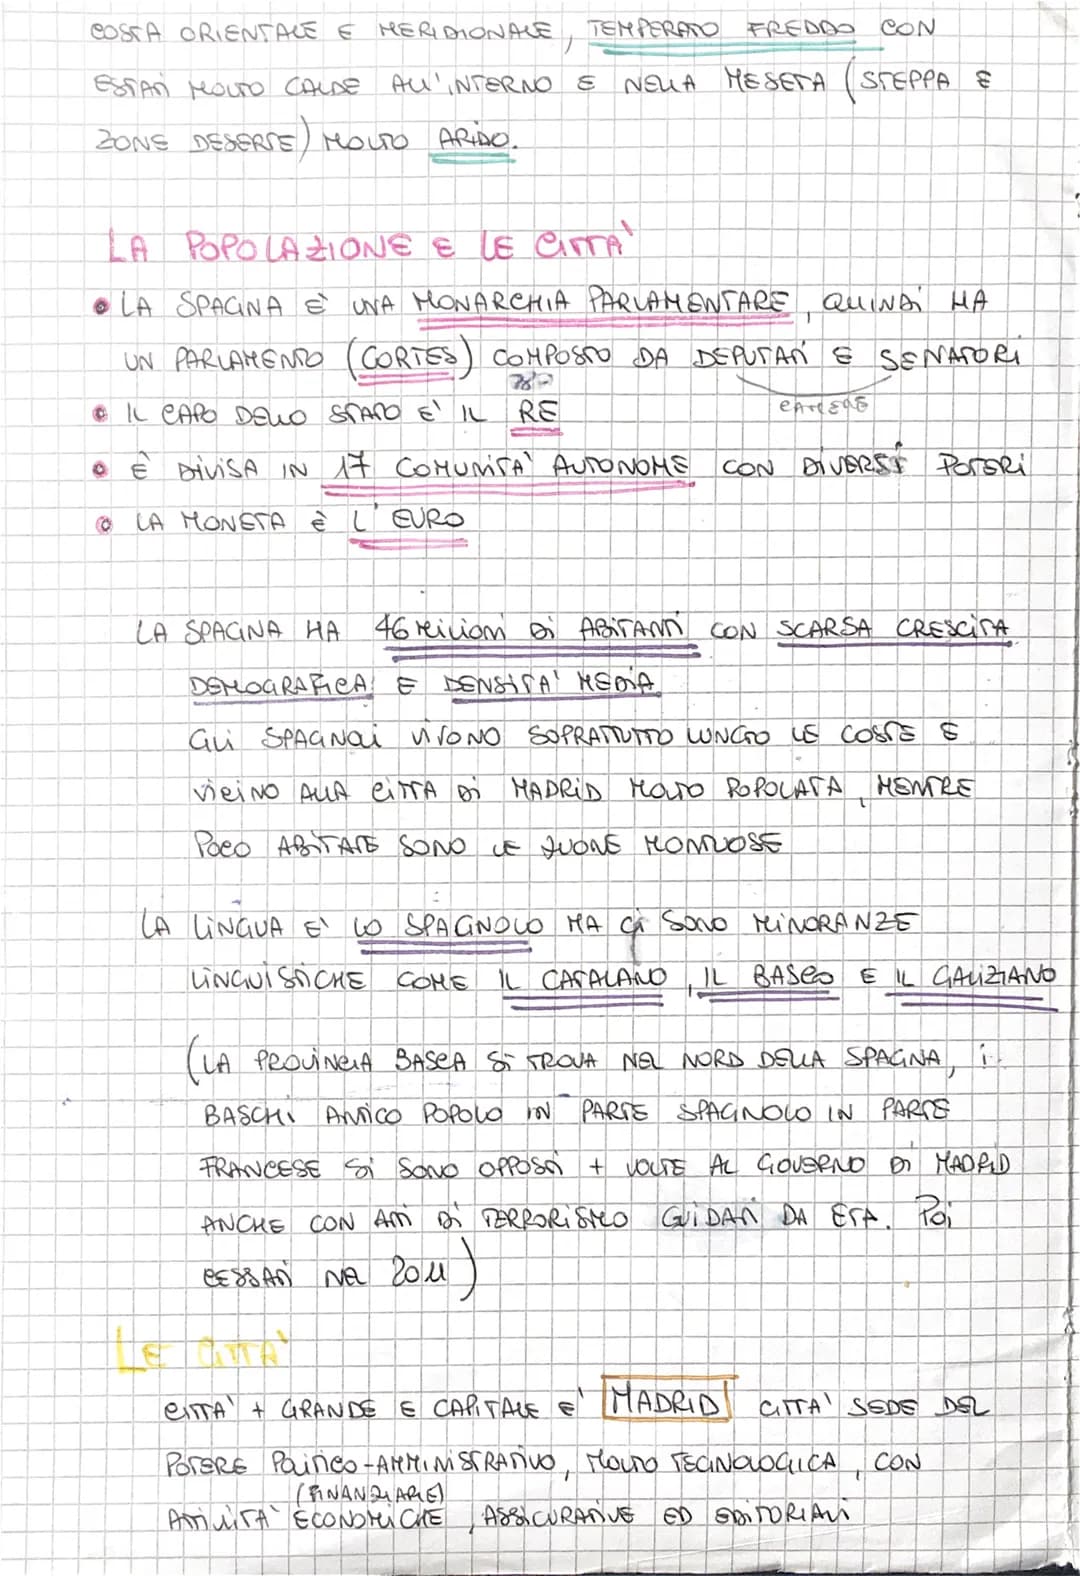 COSTA ORIENTALE E MERIDIONALE, TEMPERATO FREDDO CON
ESTATI MOLTO CALDE ALL'INTERNO E NELLA MESETA (STEPPA E
ZONE DESERTE) MOLTO ARIDO.
LA POPOLAZIONE E LE CITTA'
• LA SPAGNA È UNA MONARCHIA PARLAMENTARE, QUINDI HA
UN PARLAMENTO (CORTES) COMPOSTO DA DEPUTATI E SENATORI
CAMERE
• IL CAPO DELLO STATO E' IL RE
• È DIVISA IN 17 COMUNITA' AUTONOME CON DIVERSI POTERI
• LA MONETA È L'EURO
LA SPAGNA HA 46 milioni DI ABITANTI CON SCARSA CRESCITA
DEMOGRAFICA E DENSITA' MEDIA
Gli SPAGNOLI VIVONO SOPRATTUTTO LUNGO LE COSTE E
VICINO ALLA CITTA DI MADRID MOLTO POPOLATA, MENTRE
POCO ABITATE SONO LE ZUONE MONTUOSE
LA LINGUA E' LO SPAGNOLO MA Ci SONO MINORANZE
LINGUISTICHE COME IL CATALANO, IL BASCO E IL GALIZIANO
(LA PROVINCIA BASCA SI TROVA NEL NORD DELLA SPAGNA, i
BASCHI ANTICO POPOLO IN PARTE SPAGNOLO IN PARTE
FRANCESE SI SONO OPPOSTI + VOLTE AL GOVERNO DI MADRID
ANCHE CON ATTI DI TERRORISMO GUIDATI DA ETA. Poi
CESSATI NEL 2011)
LE CITTA'
CITTA' + GRANDE E CAPITALE E' MADRID CITTA' SEDE DEL
POTERE POLITICO-AMMINISTRATIVO, MOLTO TECNOLOGICA, CON
(FINANZIARIE)
ATTIVITA' ECONOMICHE, ASSICURATIVE ED EDITORIALI